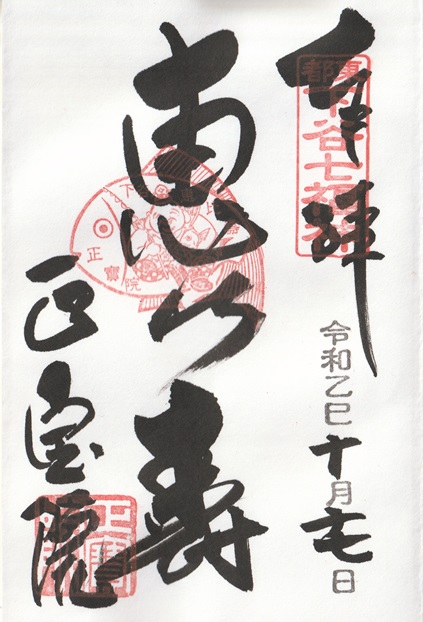 奉拝
東都
下谷七福神
令和乙巳十月日
恵比寿
正寶院
正宝院
正寶